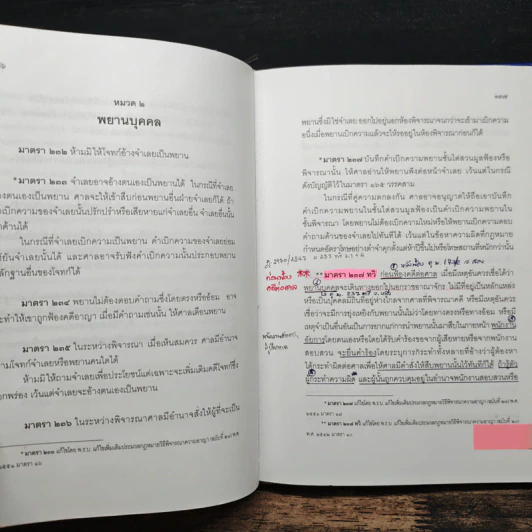 หมวด ๒
พยานบุคคล
มาตรา ๒๓๒ ห้ามมิให้โจทก์อ้างจำเลยเป็นพยาน
* มาตรา ๒๓๓ จำเลยอาจอ้างตนเองเป็นพยานได้ ในกรณีที่จำเลย
ตนเองเป็นพยาน ศาลจะให้เข้าสืบก่อนพยานอื่นฝ่ายจำเลยก็ได้ ถ้า
เบิกความของจำเลยนั้นปรักปรำหรือเสียหายแก่จำเลยอื่น จำเลยอื่นนั้น
ค้านได้
ในกรณีที่จำเลยเบิกความเป็นพยาน คำเบิกความของจำเลยย่อม
ยันจำเลยนั้นได้ และศาลอาจรับฟังคำเบิกความนั้นประกอบพยาน
หลักฐานอื่นของโจทก์ได้
มาตรา ๒๓๔ พยานไม่ต้องตอบคำถามซึ่งโดยตรงหรืออ้อม อาจ
จะทำให้เขาถูกฟ้องคดีอาญา เมื่อมีคำถามเช่นนั้น ให้ศาลเตือนพยาน
มาตรา ๒๓๕ ในระหว่างพิจารณา เมื่อเห็นสมควร ศาลมีอำนาจ
ถามโจทก์จำเลยหรือพยานคนใดได้
ห้ามมิให้ถามจำเลยเพื่อประโยชน์แต่เฉพาะจะเพิ่มเติมคดีโจทก์ซึ่ง
บกพร่อง เว้นแต่จำเลยจะอ้างตนเองเป็นพยาน
มาตรา ๒๓๖ ในระหว่างพิจารณาศาลมีอำนาจสั่งให้ผู้ที่จะเป็น
* มาตรา ๒๓๓ แก้ไขโดย พ.ร.บ. แก้ไขเพิ่มเติมประมวลกฎหมายวิธีพิจารณาความอาญา (ฉบับที่ ๒๘) พ.ศ.
๒๕๕๑ มาตรา
๑๓๗
พยานซึ่งมิใช่จำเลย ออกไปอยู่นอกห้องพิจารณาจนกว่าจะเข้ามาเบิกความ
อนึ่งเมื่อพยานเบิกความแล้วจะให้รออยู่ในห้องพิจารณาก่อนก็ได้
* มาตรา ๒๓๗ บันทึกคำเบิกความพยานชั้นไต่สวนมูลฟ้องหรือ
พิจารณานั้น ให้ศาลอ่านให้พยานฟังต่อหน้าจำเลย เว้นแต่ในกรณี
ดังบัญญัติไว้ในมาตรา ๑๖๕ วรรคสาม
ในกรณีที่คู่ความตกลงกัน ศาลอาจอนุญาตให้ถือเอาบันทึก
คำเบิกความพยานในชั้นไต่สวนมูลฟ้องเป็นคำเบิกความพยานใน
ชั้นพิจารณา โดยพยานไม่ต้องเบิกความใหม่หรือให้พยานเบิกความตอบ
คำถามค้านของจำเลยไปทันทีได้ เว้นแต่ในข้อหาความผิดที่กฎหมาย
กำหนดอัตราโทษอย่างต่ำจำคุกตั้งแต่ห้าปีขึ้นไปหรือโทษสถานที่หนักกว่านั้น
** มาตรา ๒๓๗ ทวิ ก่อนฟ้องคดีต่อศาล เมื่อมีเหตุอันควรเชื่อได้ว่า
พยานบุคคลจะเดินทางออกไปนอกราชอาณาจักร ไม่มีที่อยู่เป็นหลักแหล่ง
หรือเป็นบุคคลมีถิ่นที่อยู่ห่างไกลจากศาลที่พิจารณาคดี หรือมีเหตุอันควร
เชื่อว่าจะมีการยุ่งเหยิงกับพยานนั้นไม่ว่าโดยทางตรงหรือทางอ้อม หรือมี
เหตุจำเป็นอื่นอันเป็นการยากแก่การนำพยานนั้นมาสืบในภายหน้า พนักงาน
อัยการโดยตนเองหรือโดยได้รับคำร้องขอจากผู้เสียหายหรือจากพนักงาน
สอบสวน จะยื่นคำร้องโดยระบุการกระทำทั้งหลายที่อ้างว่าผู้ต้องหา
ได้กระทำผิดต่อศาลเพื่อให้ศาลมีคำสั่งให้สืบพยานนั้นไว้ทันทีก็ได้ ถ้ารู้ตัว
ผู้กระทำความผิด และผู้นั้นถูกควบคุมอยู่ในอำนาจพนักงานสอบสวนหรือ
* มาตรา ๒๓๗ แก้ไขโดย พ.ร.บ. แก้ไขเพิ่มเติมประมวลกฎหมายวิธีพิจารณาความอาญา (ฉบับที่ ๒๘) พ.ศ.
๒๕๕๑ มาตรา
** มาตรา ๒๓๗ ทวิ แก้ไขโดย พ.ร.บ. แก้ไขเพิ่มเติมประมวลกฎหมายวิธีพิจารณาความอาญา (ฉบับที่ ๒๘)
พ.ศ. ๒๕๕๑ มาตรา